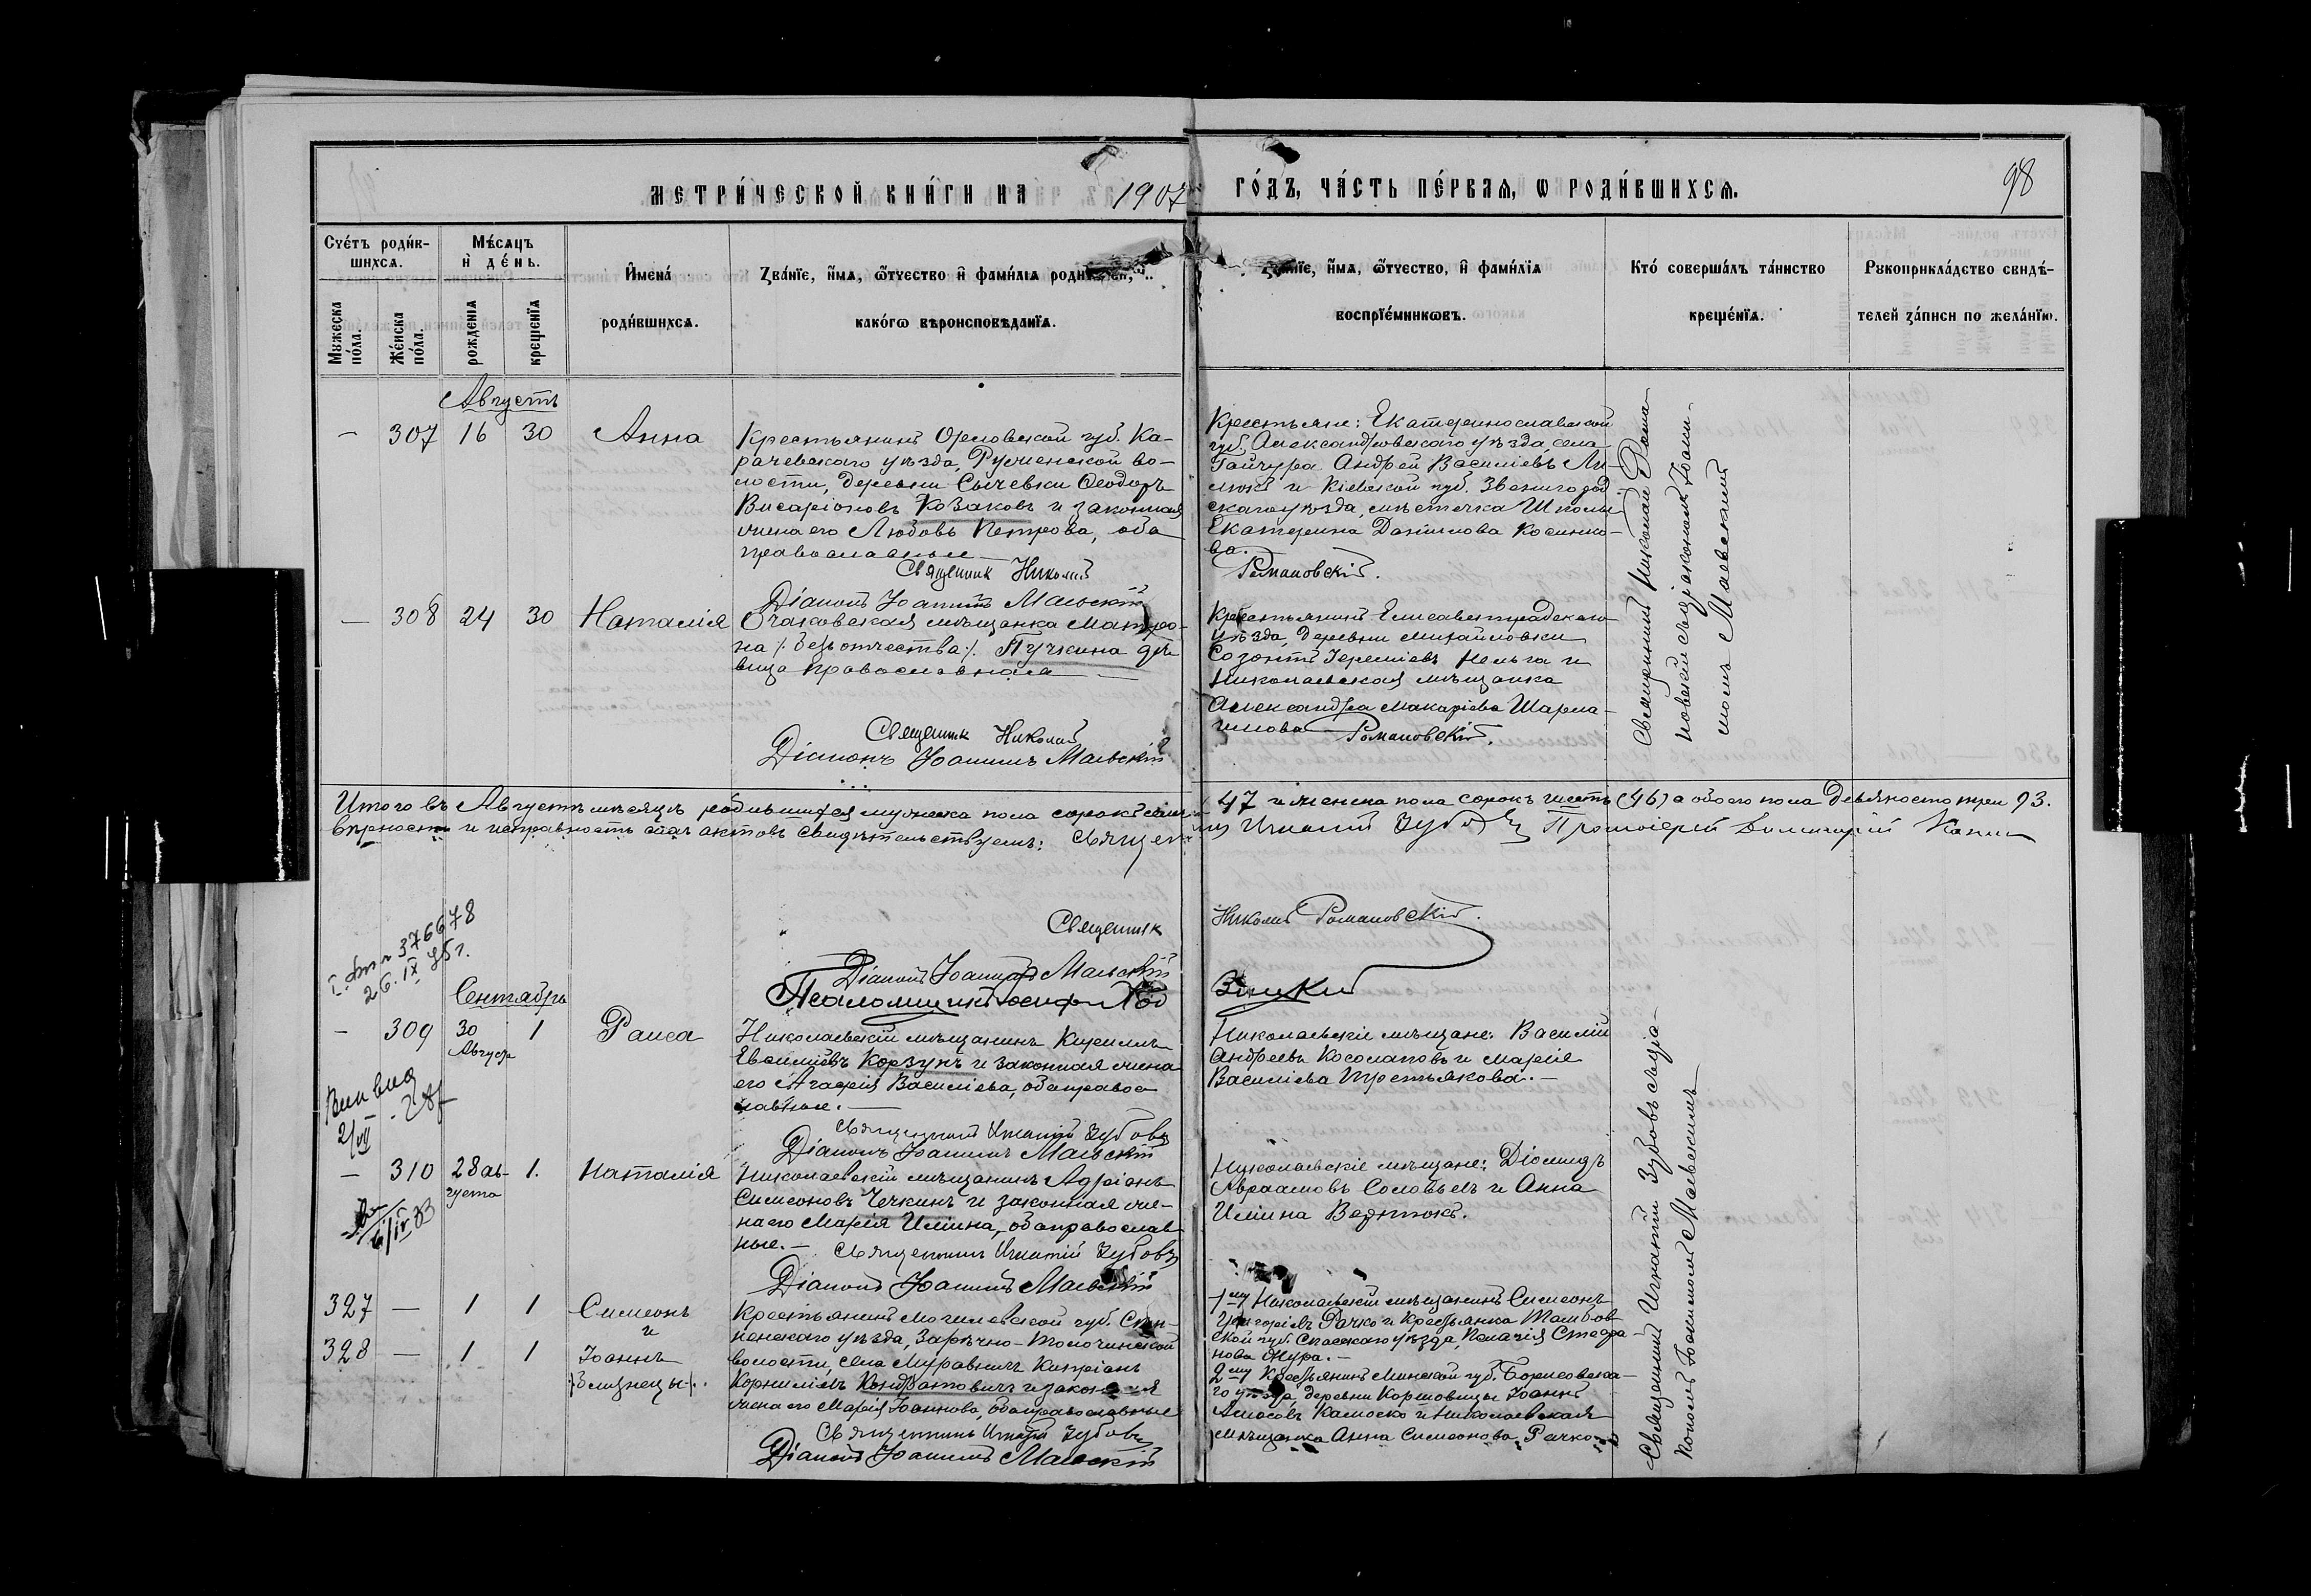 МЕТРИ́ЧЕСКОЙ КНИ́ГИ НА 1907 ГО́ДЪ, ЧА́СТЬ ПЕ́РВАѦ, Ѡ РОДИ́ВШИХСѦ.
98
Сче́тъ роди́вшихсѧ.
Мꙋжеска по́ла.
Же́нска по́ла.
Мѣ́сѧцъ и҆ де́нь.
рожденїѧ
крещенїѧ
И҆мена́ роди́вшихсѧ.
Зва́нїе, и҆́мѧ, ѻ҆́тчество и҆ фами́лїѧ
како́гѡ вѣроисповѣданїѧ.
и҆́мѧ, ѻ҆́тчество, и҆ фами́лїѧ
воспрїе́мникѡвъ.
Кто́ соверша́лъ та́инство
креще́нїѧ.
Рꙋкоприкла́дство свидѣ́-
телей за́писи по жела́нїю.
Августъ
— 307 16 30 Анна
Крестьянинъ Орловской губ. Ка-
рачевскаго уѣзда, во-
лости, деревни Сычевки Ѳеодоръ
Висаріоновъ Козаковъ и законная
жена его Любовь Петрова, оба
православные
Священник Николай
Діаконъ Іоаннъ Маевскій
Крестьяне: Екатеринославской
губ. Александровскаго уѣзда, села
Гайчура Андрей Васильевъ
и Кіевской губ. Звенигород
скаго уѣзда, мѣстечка Шполы
Екатерина Данилова
Романовскій.
Священникъ Николай Рома-
новскій съ діакономъ Іоан-
номъ Маевскимъ
— 308 24 30 Наталія
Очаковская мѣщанка Матро-
на /: безъ отчества :/ Пучкина дѣ-
вица православная
Священник Николай
Діаконъ Іоаннъ Маевскій
Крестьянинъ Елисаветградскаго
уѣзда, деревни Михайловки
Созонтъ Іереміевъ и
Николаевская мѣщанка
Александра Макаріева
Романовскій.
Итого въ Августѣ мѣсяцѣ родившихся мужеска пола сорокъ семь 47 и женска пола сорокъ шесть (46) а обоего пола девяносто три 93.
Вѣрность и исправность сихъ актовъ свидѣтельствуемъ: Священникъ Игнатій Зубовъ Протоіерей
Священник Николай Романовскій.
Діаконъ Іоаннъ Маевскій
Псаломщикъ
376678
26.IX
Сентябрь
— 309 30 Август 1 Раиса
Николаевскій мѣщанинъ Кириллъ
Евсиміевъ Корзунъ и законная жена
его Агафія Васильева, оба правос
лавные.
Священникъ Игнатій Зубовъ
Діаконъ Іоаннъ Маевскій
Николаевскіе мѣщане: Василій
Андреевъ Косолаповъ и Марія
Васильева Третьякова.
Священникъ Игнатій Зубовъ съ діа-
кономъ Іоанномъ Маевскимъ
— 310 28 ав-густа 1. Наталія
Николаевскій мѣщанинъ Адріанъ
Симеоновъ Чечкинъ и законная же-
на его Марія Ильина, оба православ
ные. — Священникъ Игнатій Зубовъ
Діаконъ Іоаннъ Маевскій
Николаевскіе мѣщане: Діомидъ
Авраамовъ Соловьевъ и Анна
Ильина
327 — 1 1 Симеонъ
и
328 — 1 1 Іоаннъ
/:близнецы:/.
Крестьянинъ Могилевской губ. Сѣн-
ненскаго уѣзда, Зарѣчно-Толочинской
волости, села Муравничъ Кипріанъ
Корниліевъ Кондратовичъ и законная
жена его Марія Іоаннова, оба православные
Священникъ Игнатій Зубовъ
Діаконъ Іоаннъ Маевскій
1му Николаевскій мѣщанинъ Симеонъ
Григорьевъ Рачко и крестьянка Тамбов
ской губ. Спасскаго уѣзда, Пелагія Стефа-
нова
2му Крестьянинъ Минской губ. Борисовска-
го уѣзда, деревни Іоаннъ
и Николаевская
мѣщанка Анна Симеонова Рачко